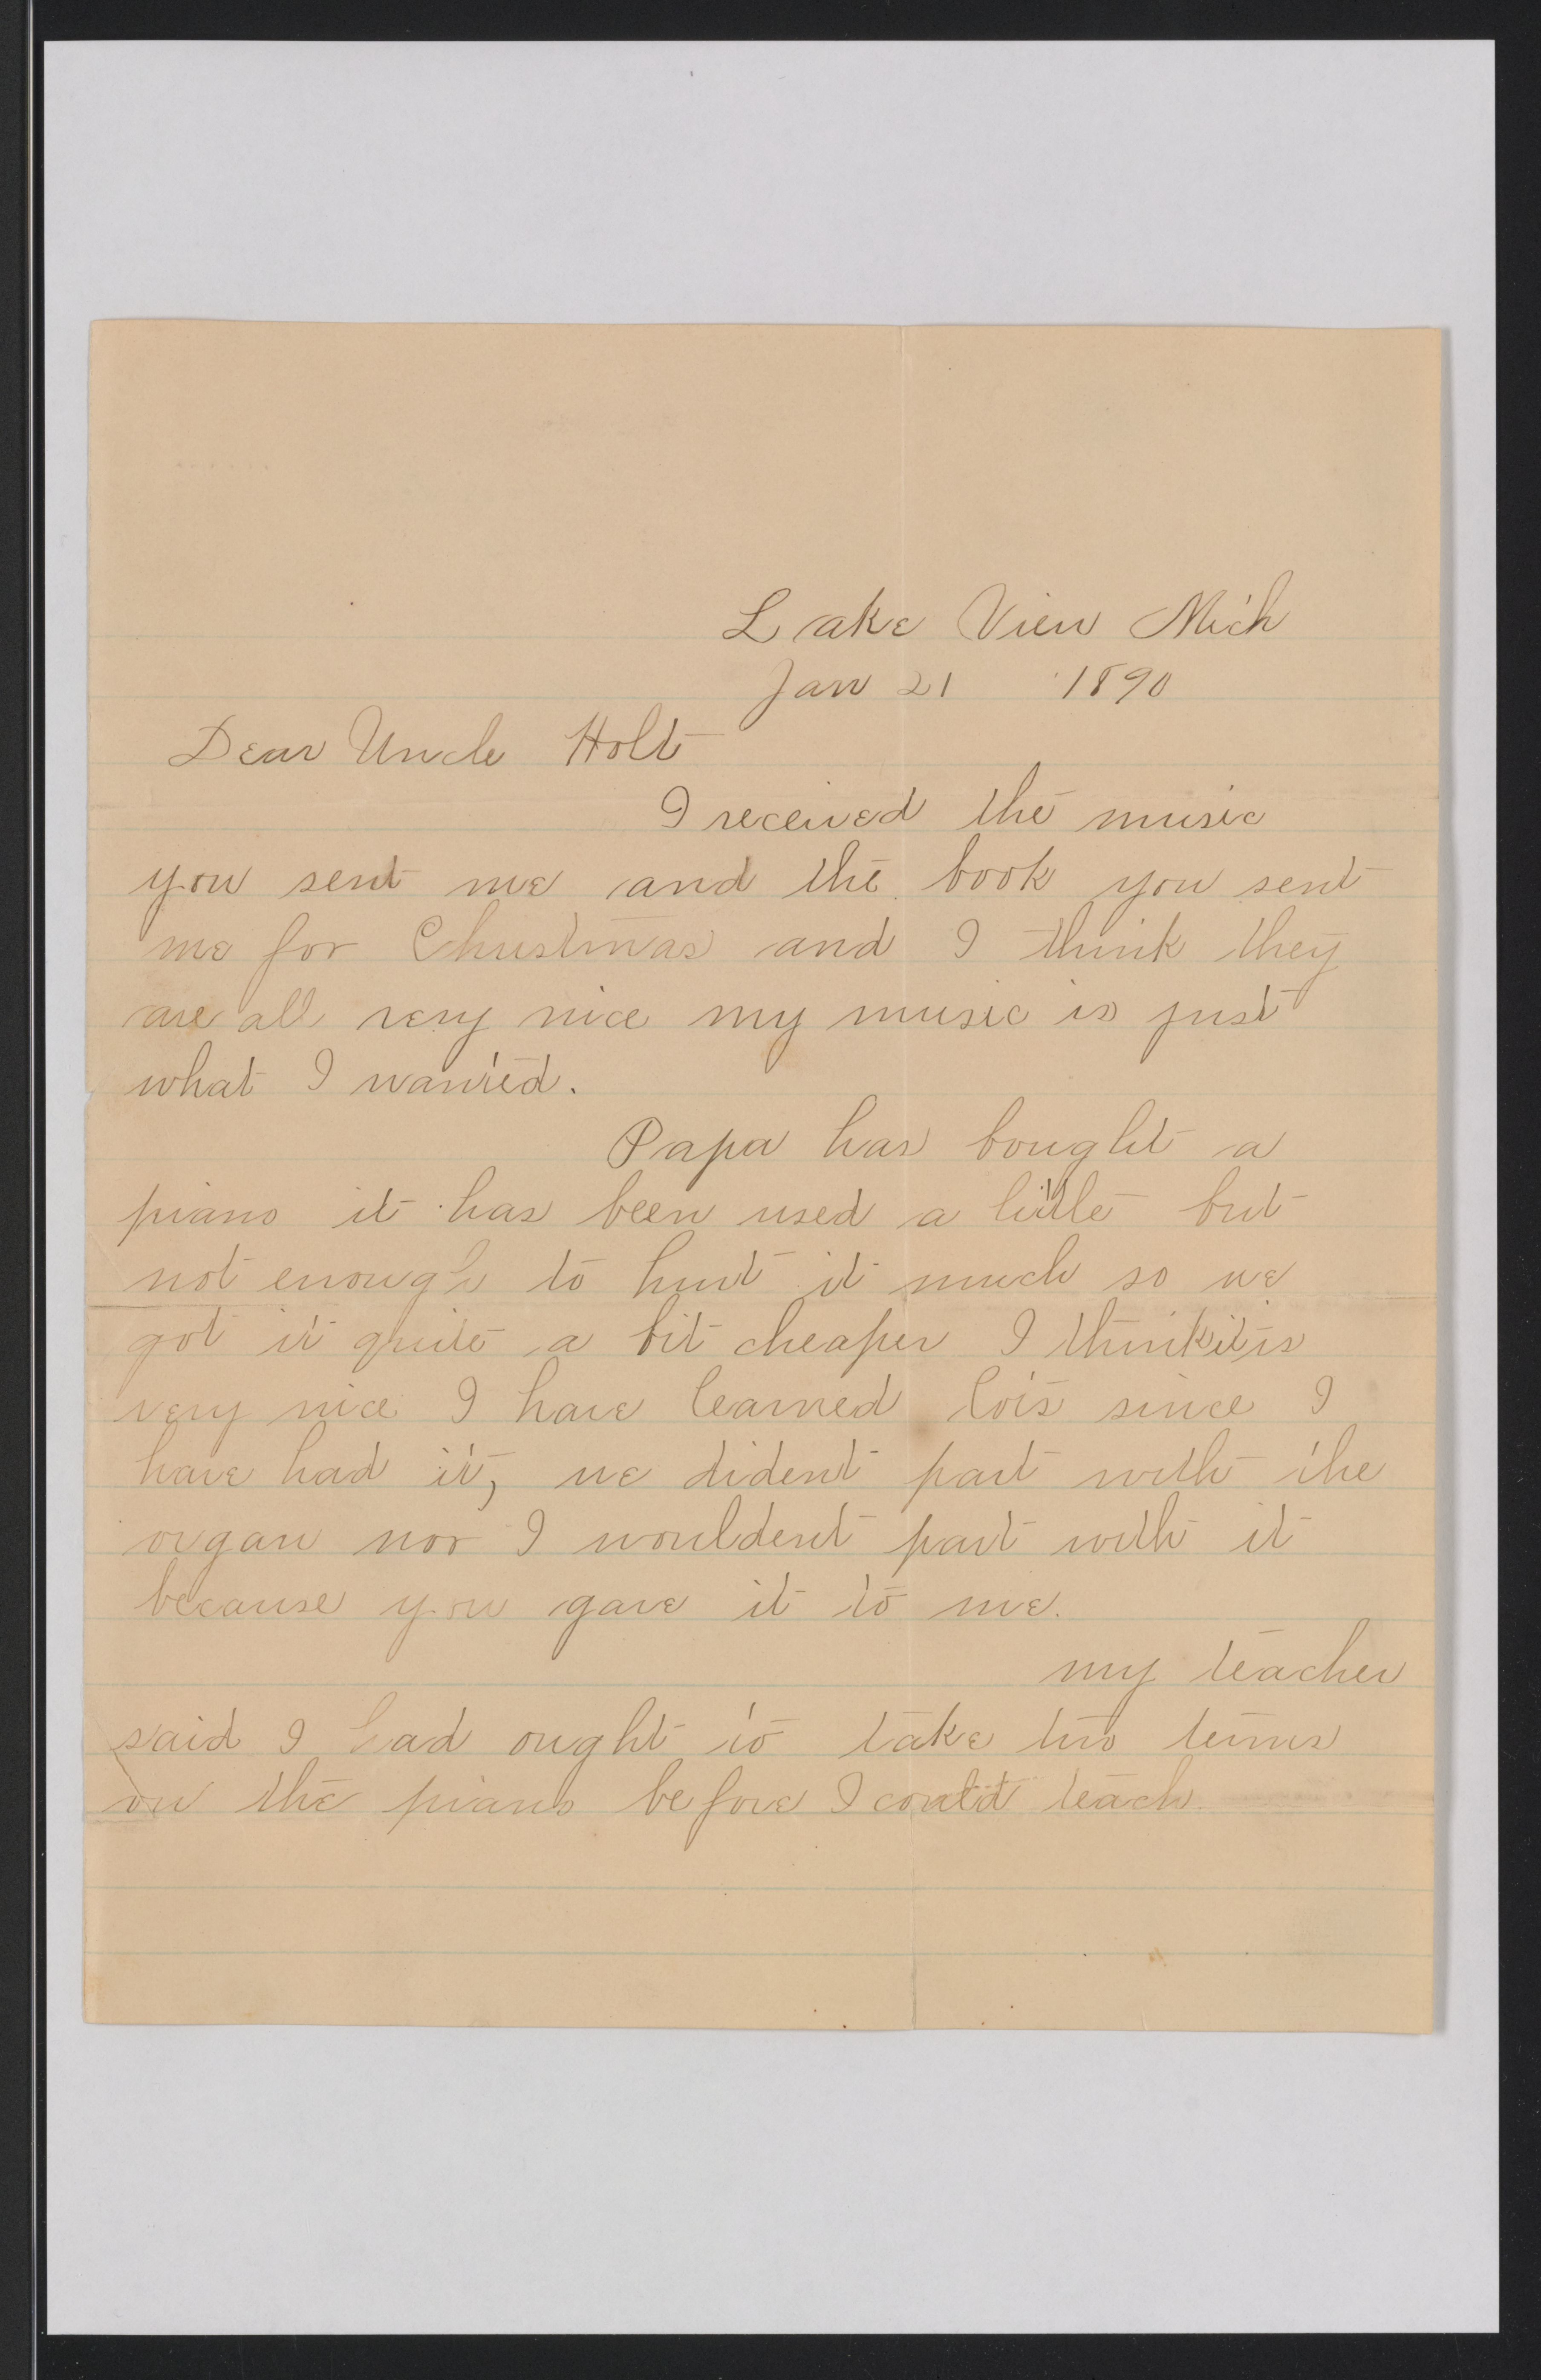 Lake View Mich
Jan 21 1890
Dear Uncle Holt
I received the music
you sent me and the book you sent
me for Christmas and I think they
are all very nice my music is just
what I wanted.
Papa has bought a
piano it has been used a little but
not enough to hurt it much so we
got it quite a bit cheaper I think it is
very nice I have learned lots since I
have had it, we dident part with the
organ nor I wouldent part with it
because you gave it to me.
my teacher
said I had ought to take two terms
on the piano before I could teach